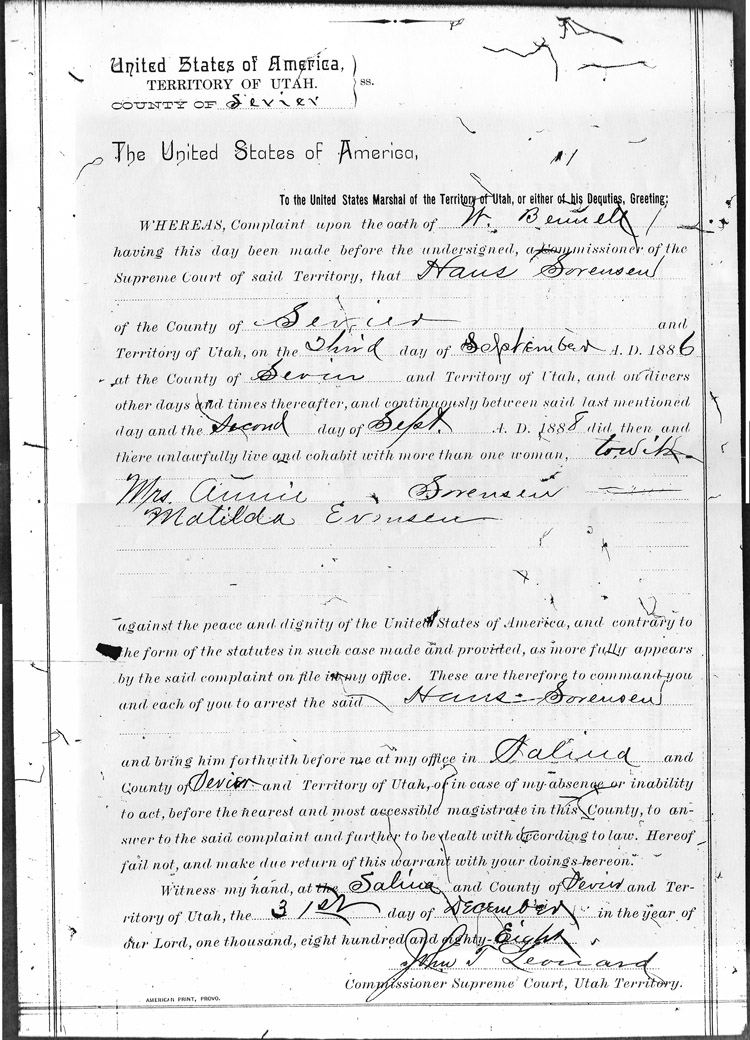 United States of America,
TERRITORY OF UTAH.
COUNTY OF Sevier
ss.
The United States of America,
To the United States Marshal of the Territory of Utah, or either of his Deputies, Greeting;
WHEREAS, Complaint upon the oath of W. Bennett
having this day been made before the undersigned, a Commissioner of the
Supreme Court of said Territory, that Hans Sorensen
of the County of Sevier and
Territory of Utah, on the Third day of September A. D. 1886
at the County of Sevier and Territory of Utah, and on divers
other days and times thereafter, and continuously between said last mentioned
day and the Second day of Sept. A. D. 1888 did then and
there unlawfully live and cohabit with more than one woman, towit
Mrs. Annie Sorensen
Matilda Evensen
against the peace and dignity of the United States of America, and contrary to
the form of the statutes in such case made and provided, as more fully appears
by the said complaint on file in my office. These are therefore to command you
and each of you to arrest the said Hans Sorensen
and bring him forthwith before me at my office in Salina and
County of Sevier and Territory of Utah, or in case of my absence or inability
to act, before the nearest and most accessible magistrate in this County, to an-
swer to the said complaint and further to be dealt with according to law. Hereof
fail not, and make due return of this warrant with your doings hereon.
Witness my hand, at the Salina and County of Sevier and Ter-
ritory of Utah, the 31st day of December in the year of
our Lord, one thousand, eight hundred and eighty-Eight
John T Leonard
Commissioner Supreme Court, Utah Territory.
AMERICAN PRINT, PROVO.